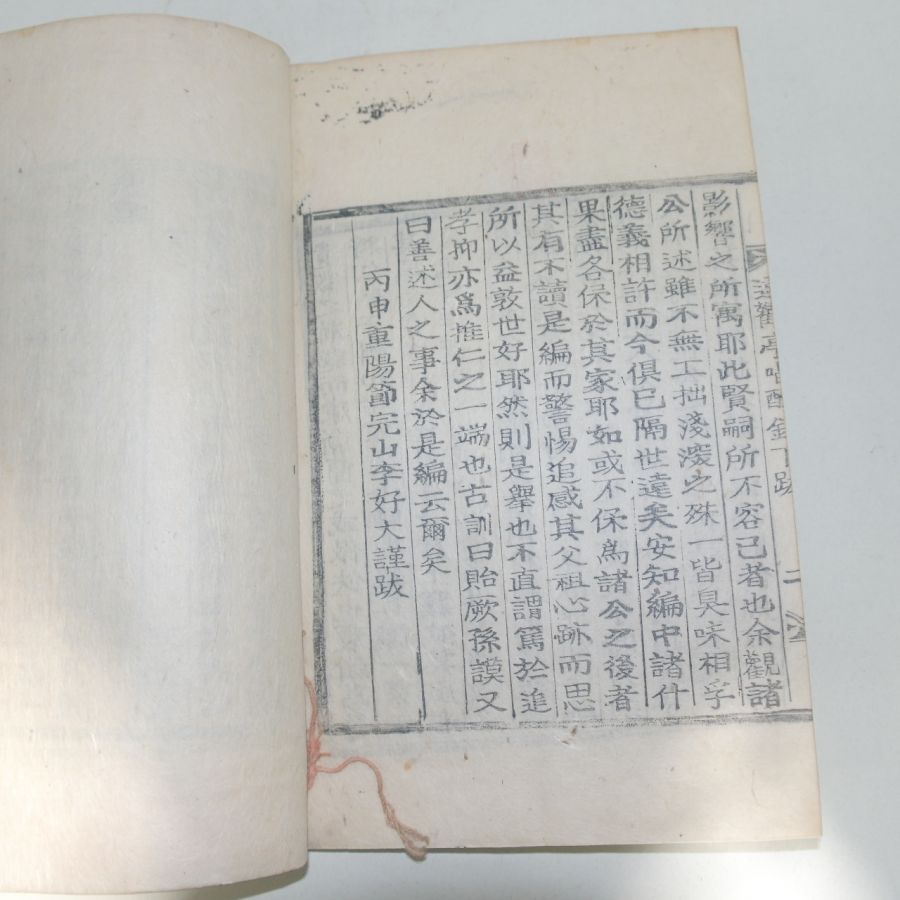 達觀亭唱酬錄下跋 二
影響之所寓耶此賢嗣所不容已者也余觀諸
公所述雖不無工拙淺深之殊一皆臭味相孚
德義相許而今俱已隔世遠矣安知編中諸什
果盡各保於其家耶如或不保爲諸公之後者
其有不讀是編而警惕追感其父祖心跡而思
所以益敦世好耶然則是擧也不直謂篤於追
孝抑亦爲推仁之一端也古訓曰貽厥孫謨又
曰善述人之事余於是編云爾矣
丙申重陽節完山李好大謹跋